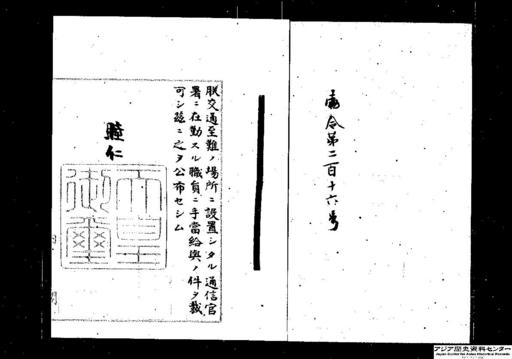 勅令第二百十六号
朕交通至難ノ場所ニ設置シタル通信官
署ニ在勤スル職員ニ手當給與ノ件ヲ裁
可シ茲ニ之ヲ公布セシム
睦仁
天皇
御璽
アジア歴史資料センター
Japan Center for Asian Historical Records